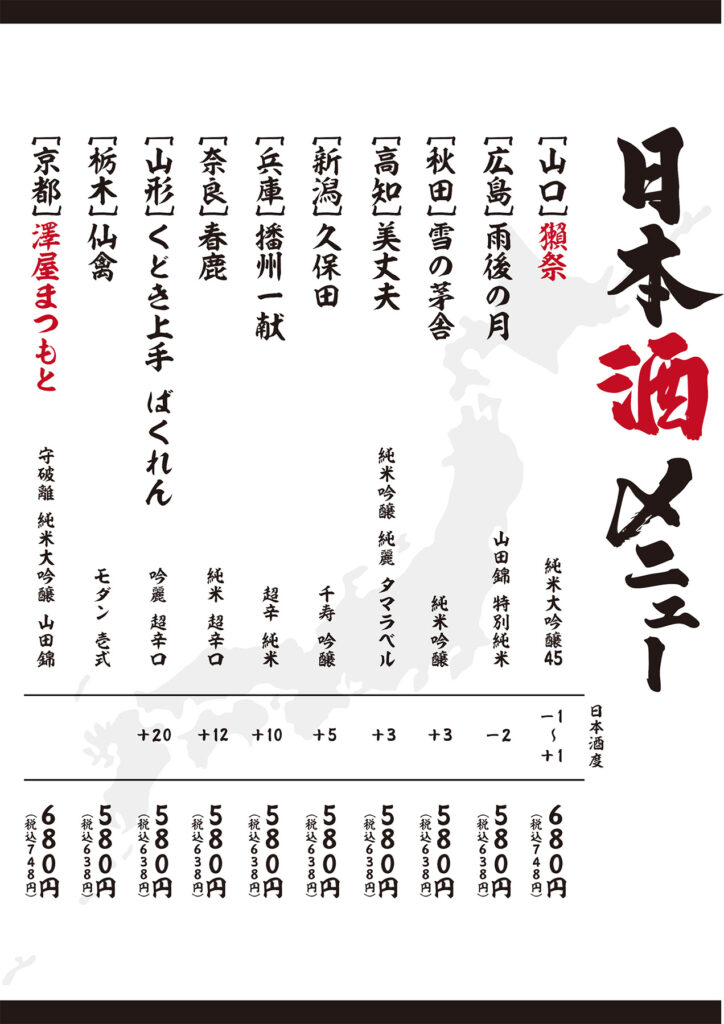 日本酒メニュー
日本酒度
[山口]獺祭 純米大吟醸45 −1〜+1 680円
(税込748円)
[広島]雨後の月 山田錦 特別純米 −2 580円
(税込638円)
[秋田]雪の茅舎 純米吟醸 +3 580円
(税込638円)
[高知]美丈夫 純米吟醸 純麗 タマラベル +3 580円
(税込638円)
[新潟]久保田 千寿 吟醸 +5 580円
(税込638円)
[兵庫]播州一献 超辛 純米 +10 580円
(税込638円)
[奈良]春鹿 純米 超辛口 +12 580円
(税込638円)
[山形]くどき上手 ばくれん 吟麗 超辛口 +20 580円
(税込638円)
[栃木]仙禽 モダン 壱式 580円
(税込638円)
[京都]澤屋まつもと 守破離 純米大吟醸 山田錦 680円
(税込748円)